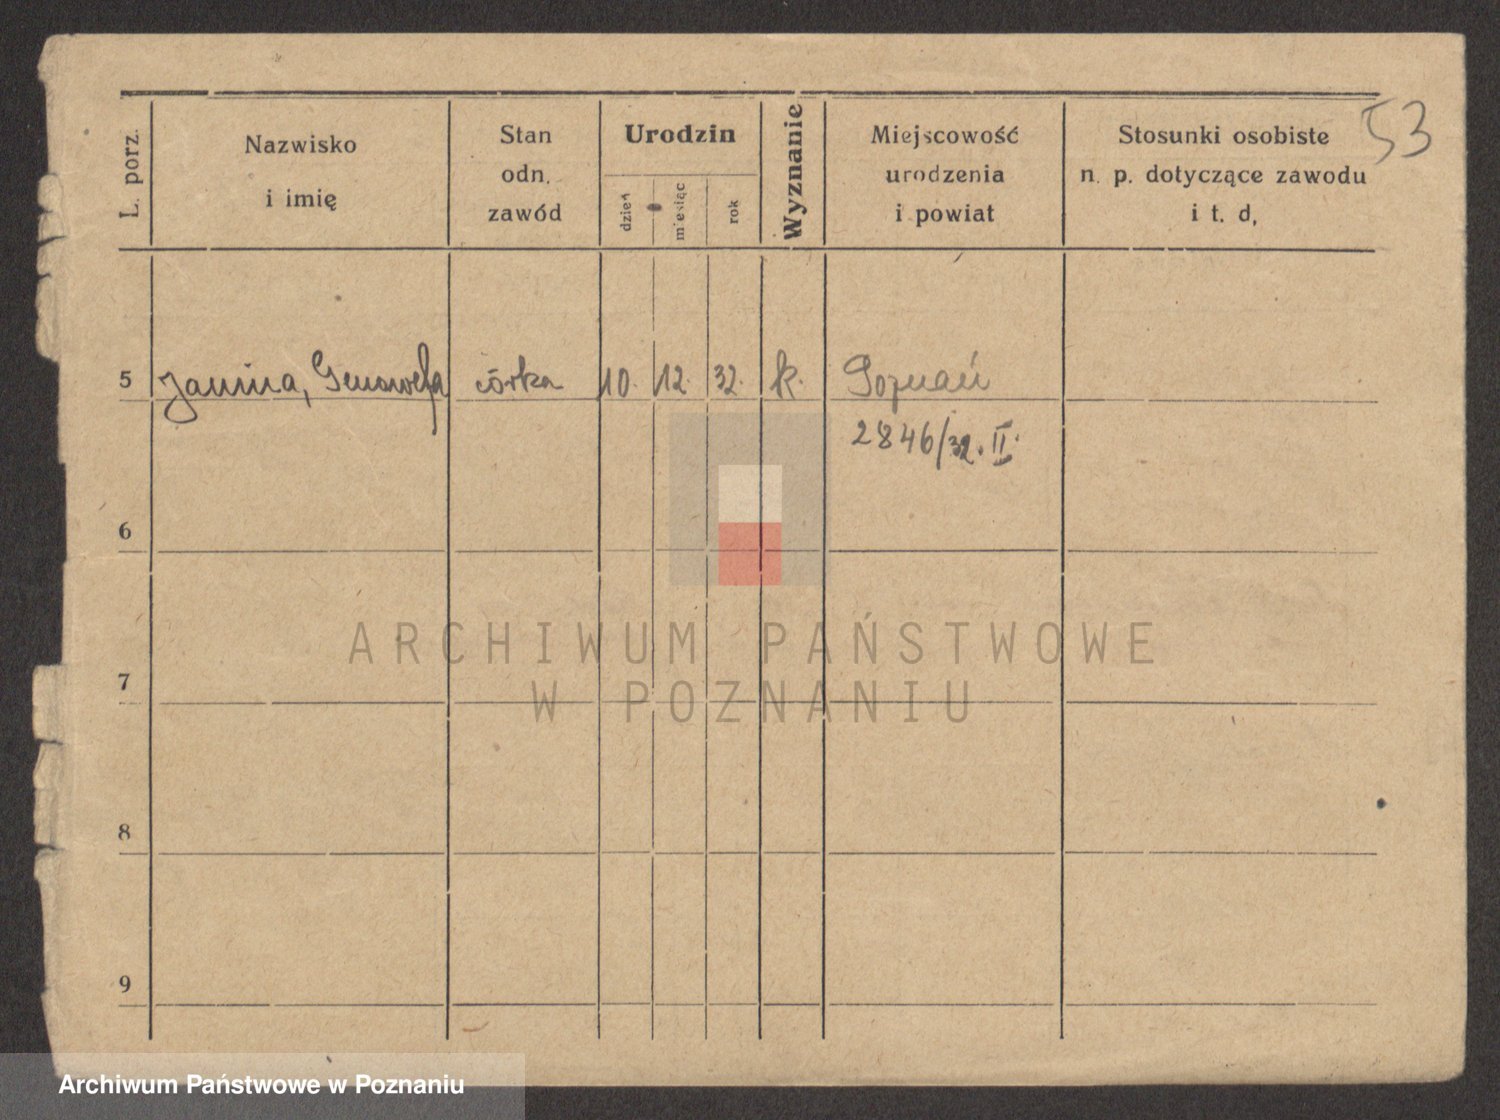 53
L. porz.
Nazwisko
i imię
Stan
odn.
zawód
Urodzin
dzień
miesiąc
rok
Wyznanie
Miejscowość
urodzenia
i powiat
Stosunki osobiste
n. p. dotyczące zawodu
i t. d,
5 Janina, Genowefa córka 10. 12. 32. k. Poznań
2846/32. II.
6
7
8
9
ARCHIWUM PAŃSTWOWE
W POZNANIU
Archiwum Państwowe w Poznaniu